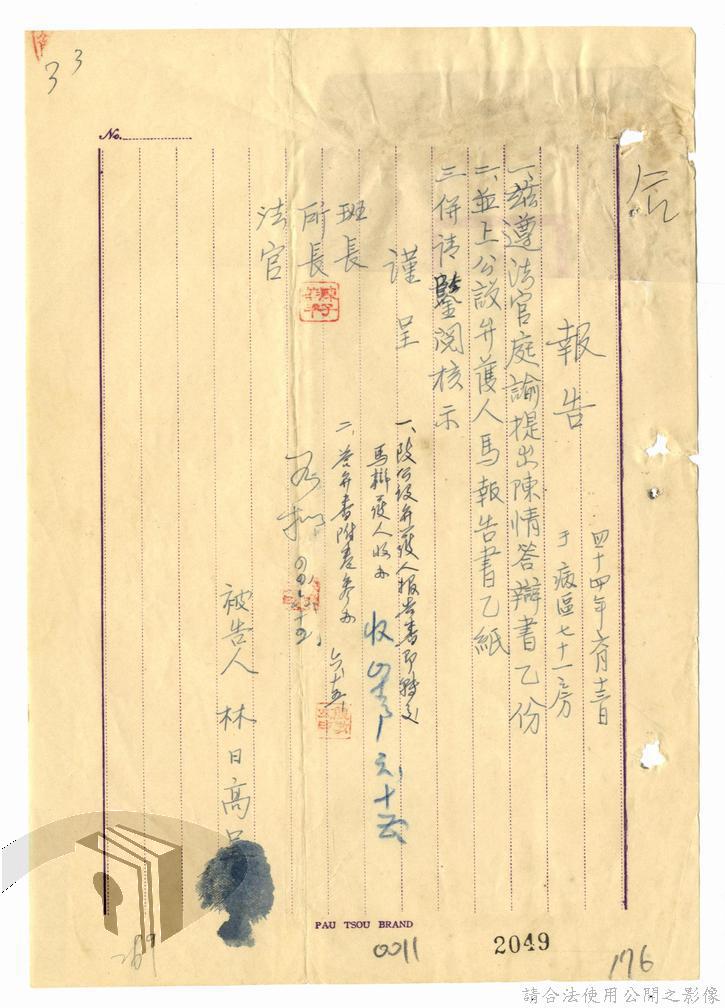 33
No.
報告 四十四年六月十三日
于病區七十一房
一、茲遵法官庭諭提出陳情答辯書乙份
二、並上公設弁護人馬報告書乙紙
三、併請鑒閱核示
謹呈
班長
所長
法官
一、陵公設弁護人報告書即轉交
馬辯護人收办
二、答弁書附卷參办 六十五
被告人 林日高呈
PAU TSOU BRAND
2049
0011
176
請合法使用公開之影像